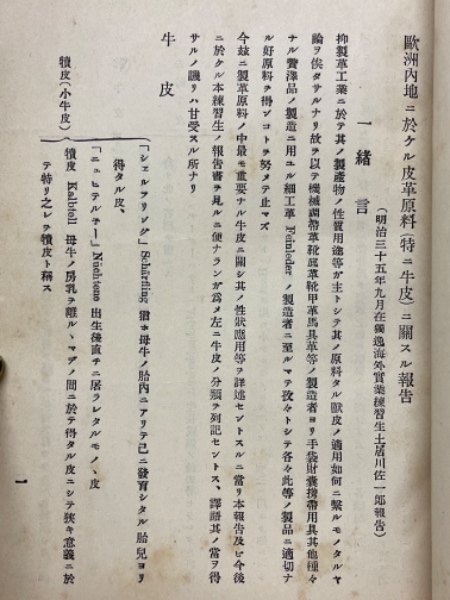 歐洲內地ニ於ケル皮革原料（特ニ牛皮）ニ關スル報告
（明治三十五年九月在獨逸海外實業練習生土居川佐一郎報告）
一 緒言
抑製革工業ニ於テ其ノ製產物ノ性質用途等ガ主トシテ其ノ原料タル獸皮ノ適用如何ニ繫ルモノタルヤ
論ヲ俟タサルナリ故ヲ以テ機械調帶革靴底革靴甲革馬具革等ノ製造者ヨリ手袋財囊携帶用具其他種々
ナル贅澤品ノ製造ニ用ユル細工革 Feinleder ノ製造者ニ至ルマテ孜々トシテ各々此等ノ製品ニ適切ナ
ル好原料ヲ得ンコトヲ努メテ止マズ
今玆ニ製革原料ノ中最モ重要ナル牛皮ニ關シ其ノ性狀應用等ヲ詳述セントスルニ當リ本報告及ヒ今後
ニ於ケル本練習生ノ報告書ヲ見ルニ便ナランガ爲メ左ニ牛皮ノ分類ヲ列記セントス、譯語其ノ當ヲ得
サルノ譏リハ甘受スル所ナリ
牛皮
「シェルフリング」Schärfling 猶ホ母牛ノ胎內ニアリテ已ニ發育シタル胎兒ヨリ
得タル皮、
「ニュヒテルテー」Nüchtene 出生後直チニ屠ラレタルモノヽ皮
犢皮（小牛皮）
犢皮 Kalbfell 母牛ノ房乳ヲ離ルヽマデノ間ニ於テ得タル皮ニシテ狹キ意義ニ於
テ特リ之レヲ犢皮ト稱ス
一